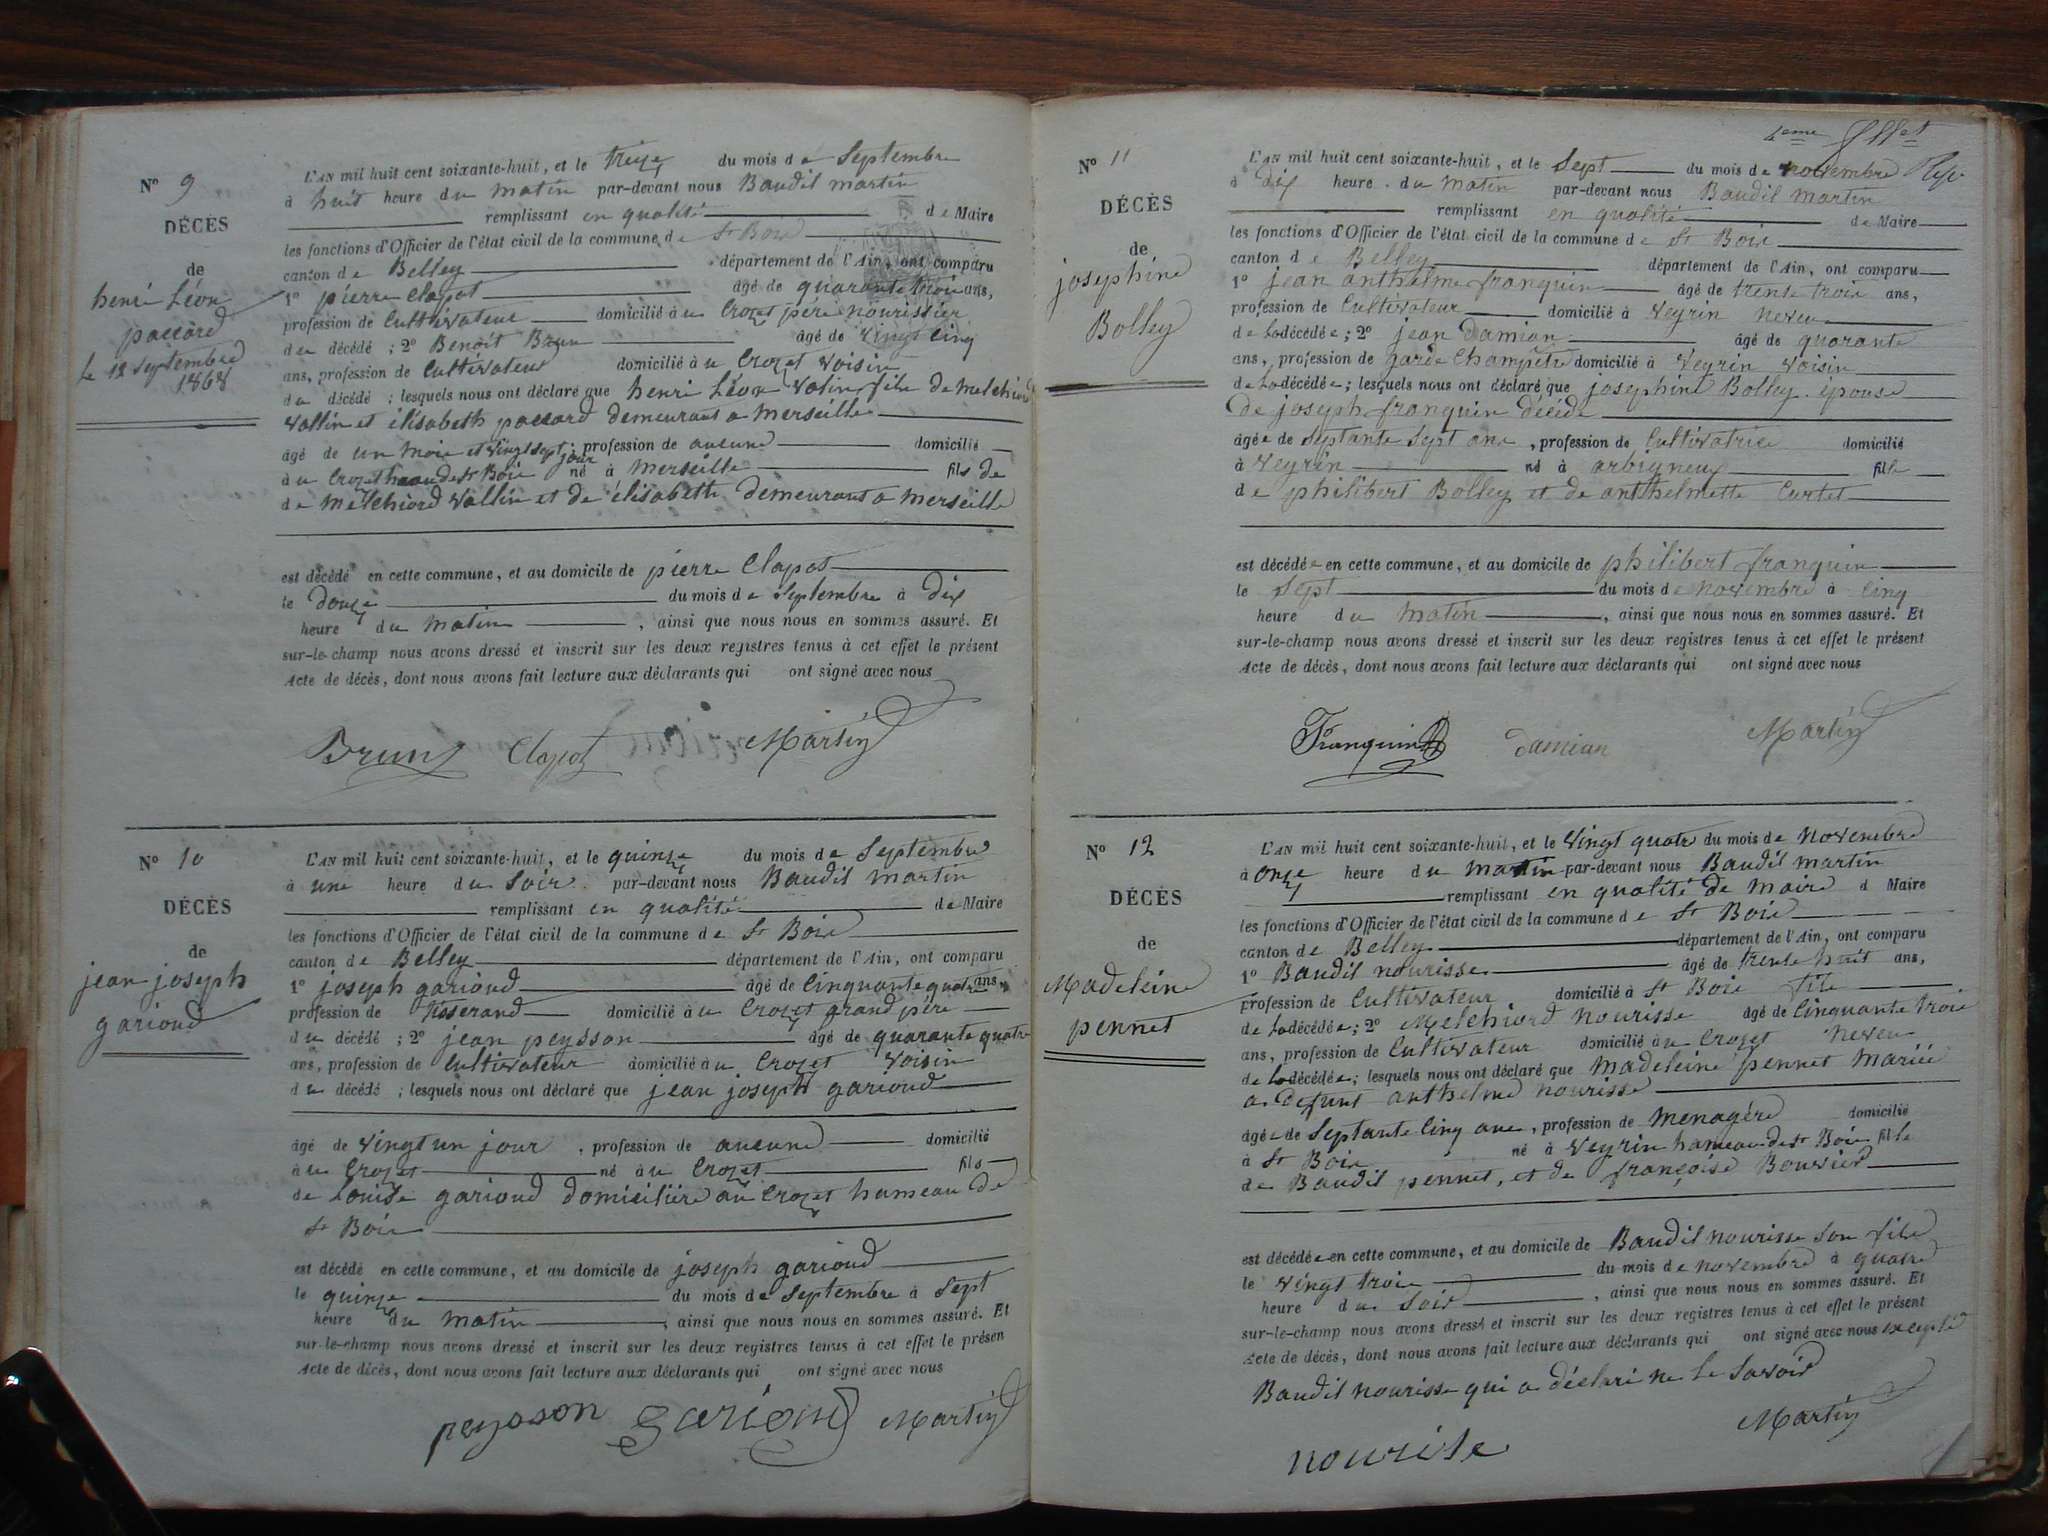 N° 9
DÉCÈS
de
henri Léon
paccard
le 12 Septembre
1868
L'AN mil huit cent soixante-huit, et le treize du mois de Septembre
à huit heure du matin par-devant nous Baudil martin
remplissant en qualité de Maire
les fonctions d'Officier de l'état civil de la commune de St Bois
canton de Belley département de l'Ain, ont comparu
1° pierre Clapot âgé de quarante trois ans,
profession de Cultivateur domicilié au Crozet père nourissier
du décédé ; 2° Benoit Brun âgé de vingt cinq
ans, profession de Cultivateur domicilié au Crozet voisin
du décédé ; lesquels nous ont déclaré que henri Léon Valin fils de melchiord
Vallin et élisabeth paccard demeurant a merseille
âgé de un mois et vingt sept jour profession de aucune domicilié
au Crozet hamau de St Bois né à merseille fils de
de melchiord Vallin et de élisabeth demeurant a merseille
est décédé en cette commune, et au domicile de pierre Clapot
le douze du mois de Septembre à dix
heure du matin , ainsi que nous nous en sommes assuré. Et
sur-le-champ nous avons dressé et inscrit sur les deux registres tenus à cet effet le présent
Acte de décès, dont nous avons fait lecture aux déclarants qui ont signé avec nous
Brun Clapot Martin
N° 10
DÉCÈS
de
jean joseph
garioud
L'AN mil huit cent soixante-huit, et le quinze du mois de Septembre
à une heure du Soir par-devant nous Baudil martin
remplissant en qualité de Maire
les fonctions d'Officier de l'état civil de la commune de St Bois
canton de Belley département de l'Ain, ont comparu
1° joseph garioud âgé de Cinquante quatre ans,
profession de tisserand domicilié au Crozet grand père
du décédé ; 2° jean peysson âgé de quarante quatre
ans, profession de Cultivateur domicilié au Crozet voisin
du décédé ; lesquels nous ont déclaré que jean joseph garioud
âgé de vingt un jour , profession de aucune domicilié
au Crozet né au Crozet fils
de Louise garioud domiciliée au Crozet hameau de
St Bois
est décédé en cette commune, et au domicile de joseph garioud
le quinze du mois de Septembre à Sept
heure du matin , ainsi que nous nous en sommes assuré. Et
sur-le-champ nous avons dressé et inscrit sur les deux registres tenus à cet effet le présen
Acte de décès, dont nous avons fait lecture aux déclarants qui ont signé avec nous
peysson garioud Martin
4eme
N° 11
DÉCÈS
de
josephine
Bolley
L'AN mil huit cent soixante-huit, et le Sept du mois de novembre
à dix heure du matin par-devant nous Baudil martin
remplissant en qualité de Maire
les fonctions d'Officier de l'état civil de la commune de St Bois
canton de Belley département de l'Ain, ont comparu
1° jean anthelme franquin âgé de trente trois ans,
profession de Cultivateur domicilié à Veyrin neveu
de la décédée ; 2° jean Damian âgé de quarante
ans, profession de garde Champêtre domicilié à Veyrin voisin
de la décédée ; lesquels nous ont déclaré que josephine Bolley épouse
de joseph franquin décédé
âgée de Septante Sept ans , profession de Cultivatrice domicilié
à Veyrin né à arbigneux fille
de philibert Bolley et de anthelmette Curtet
est décédée en cette commune, et au domicile de philibert franquin
le Sept du mois de novembre à cinq
heure du matin , ainsi que nous nous en sommes assuré. Et
sur-le-champ nous avons dressé et inscrit sur les deux registres tenus à cet effet le présent
Acte de décès, dont nous avons fait lecture aux déclarants qui ont signé avec nous
Franquin damian Martin
N° 12
DÉCÈS
de
Madeleine
pennet
L'AN mil huit cent soixante-huit, et le vingt quatre du mois de novembre
à onze heure du matin par-devant nous Baudil martin
remplissant en qualité de maire d Maire
les fonctions d'Officier de l'état civil de la commune de St Bois
canton de Belley département de l'Ain, ont comparu
1° Baudil nourisse âgé de trente huit ans,
profession de Cultivateur domicilié à St Bois fils
de la décédée ; 2° Melchiord nourisse âgé de cinquante trois
ans, profession de Cultivateur domicilié au Crozet neveu
de la décédée ; lesquels nous ont déclaré que madeleine pennet Mariée
a defunt anthelme nourisse
âgée de Septante Cinq ans , profession de menagère domicilié
à St Bois né à Veyrin hameau de St Bois fille
de Baudil pennet, et de françoise Bouvier
est décédée en cette commune, et au domicile de Baudil nourisse son fils
le vingt trois du mois de novembre à quatre
heure du Soir , ainsi que nous nous en sommes assuré. Et
sur-le-champ nous avons dressé et inscrit sur les deux registres tenus à cet effet le présent
Acte de décès, dont nous avons fait lecture aux déclarants qui ont signé avec nous excepté
Baudil nourisse qui a déclaré ne le Savoir
Martin
nourise